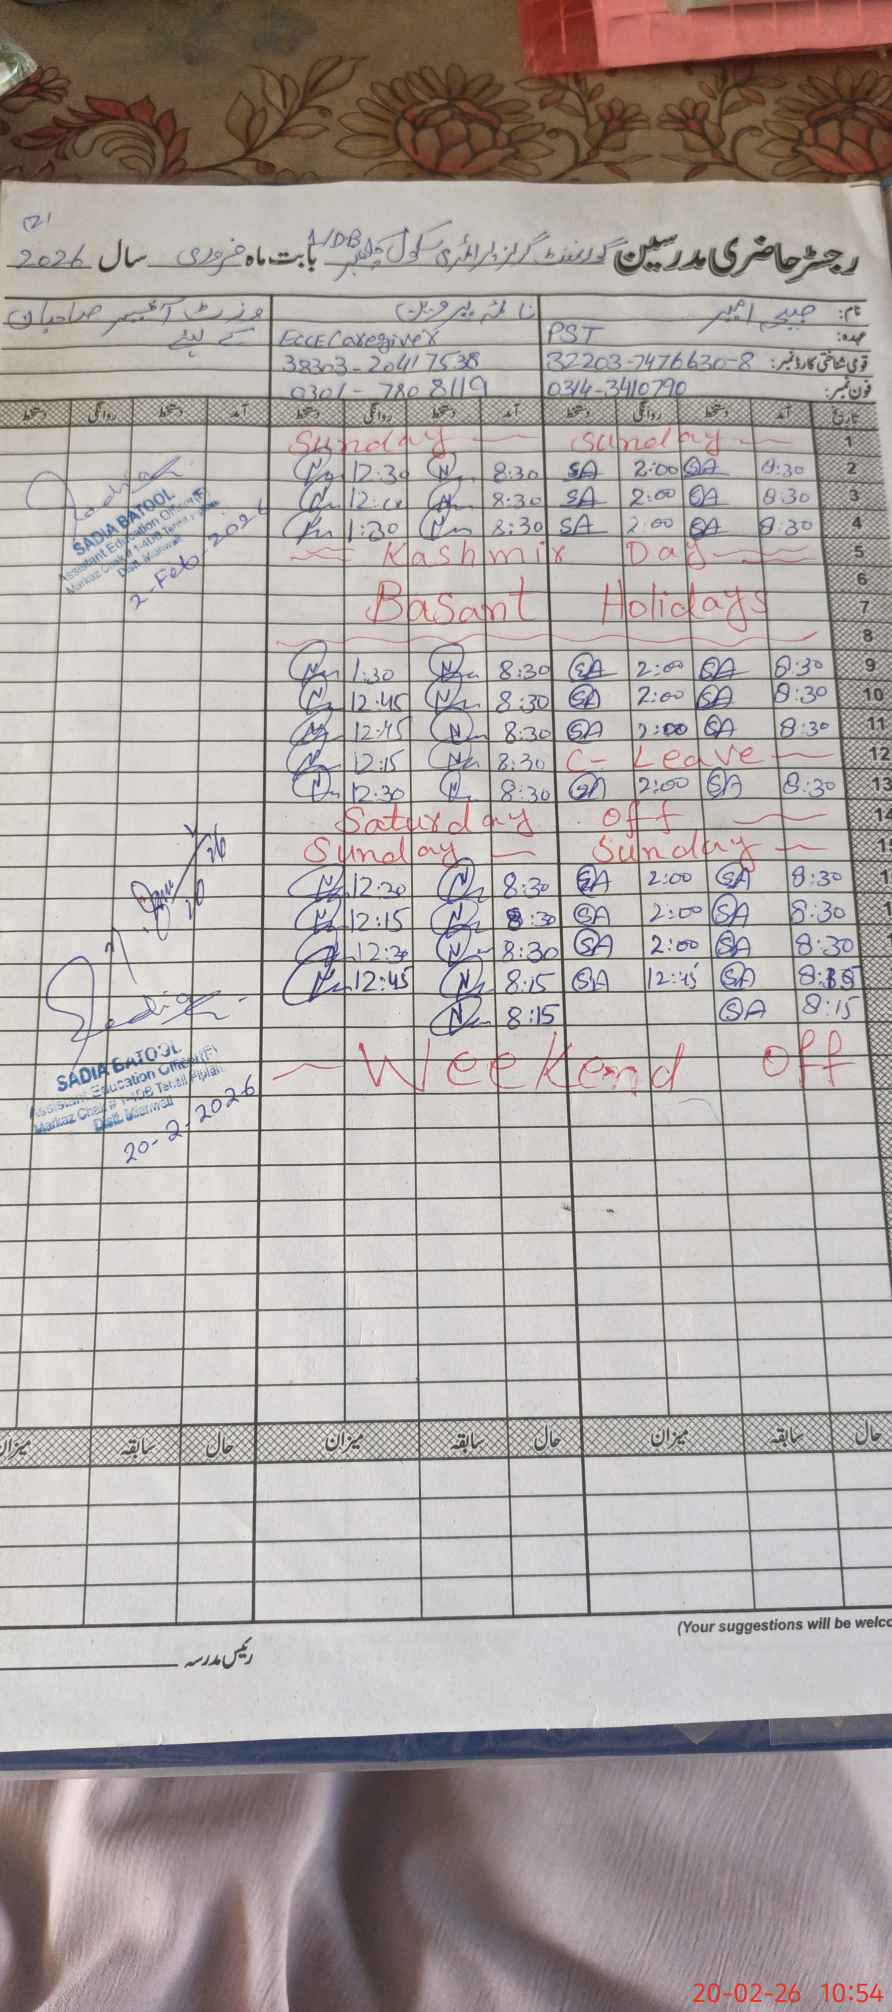 (2)
رجسٹر حاضری مدرسین گورنمنٹ گرلز پرائمری سکول 1/DB بابت ماہ فروری سال 2026
نام:
وزٹ آفیسر صاحبان
عہدہ: PST ECCE Caregiver کے لیے
قومی شناختی کارڈ نمبر: 32203-7476630-8 38303-20417538
فون نمبر: 0314-3410790 0301-7808119
تاریخ آمد دستخط روانگی دستخط آمد دستخط روانگی دستخط آمد دستخط روانگی دستخط
1 Sunday Sunday
2 8:30 SA 2:00 SA 8:30 N 12:30 N
3 8:30 SA 2:00 SA 8:30 N N
4 8:30 SA 2:00 SA 8:30 N 1:30 N
5 Kashmir Day
6
7 Basant Holidays
8
9 8:30 SA 2:00 SA 8:30 N 1:30 N
10 8:30 SA 2:00 SA 8:30 N 12:45 N
11 8:30 SA 2:00 SA 8:30 N 12:45 N
12 C-Leave 8:30 N 12:15 N
13 8:30 SA 2:00 SA 8:30 N 12:30 N
Saturday off
Sunday Sunday
8:30 SA 2:00 SA 8:30 N 12:30 N
8:30 SA 2:00 SA 8:30 N 12:15 N
8:30 SA 2:00 SA 8:30 N 12:30 N
SA 12:45 SA 8:15 N 12:45 N
8:15 SA 8:15 N
Weekend off
Sadia
SADIA BATOOL
Assistant Education Officer (F)
Markaz Chak # 1-4DB Tehsil Piplan
Distt. Mianwali
2-Feb-2026
Sadia
SADIA BATOOL
Assistant Education Officer (F)
Markaz Chak # 1-4DB Tehsil Piplan
Distt. Mianwali
20-2-2026
حال سابقہ میزان حال سابقہ میزان حال سابقہ میزان
(Your suggestions will be welco
رئیس مدرسہ
20-02-26 10:54